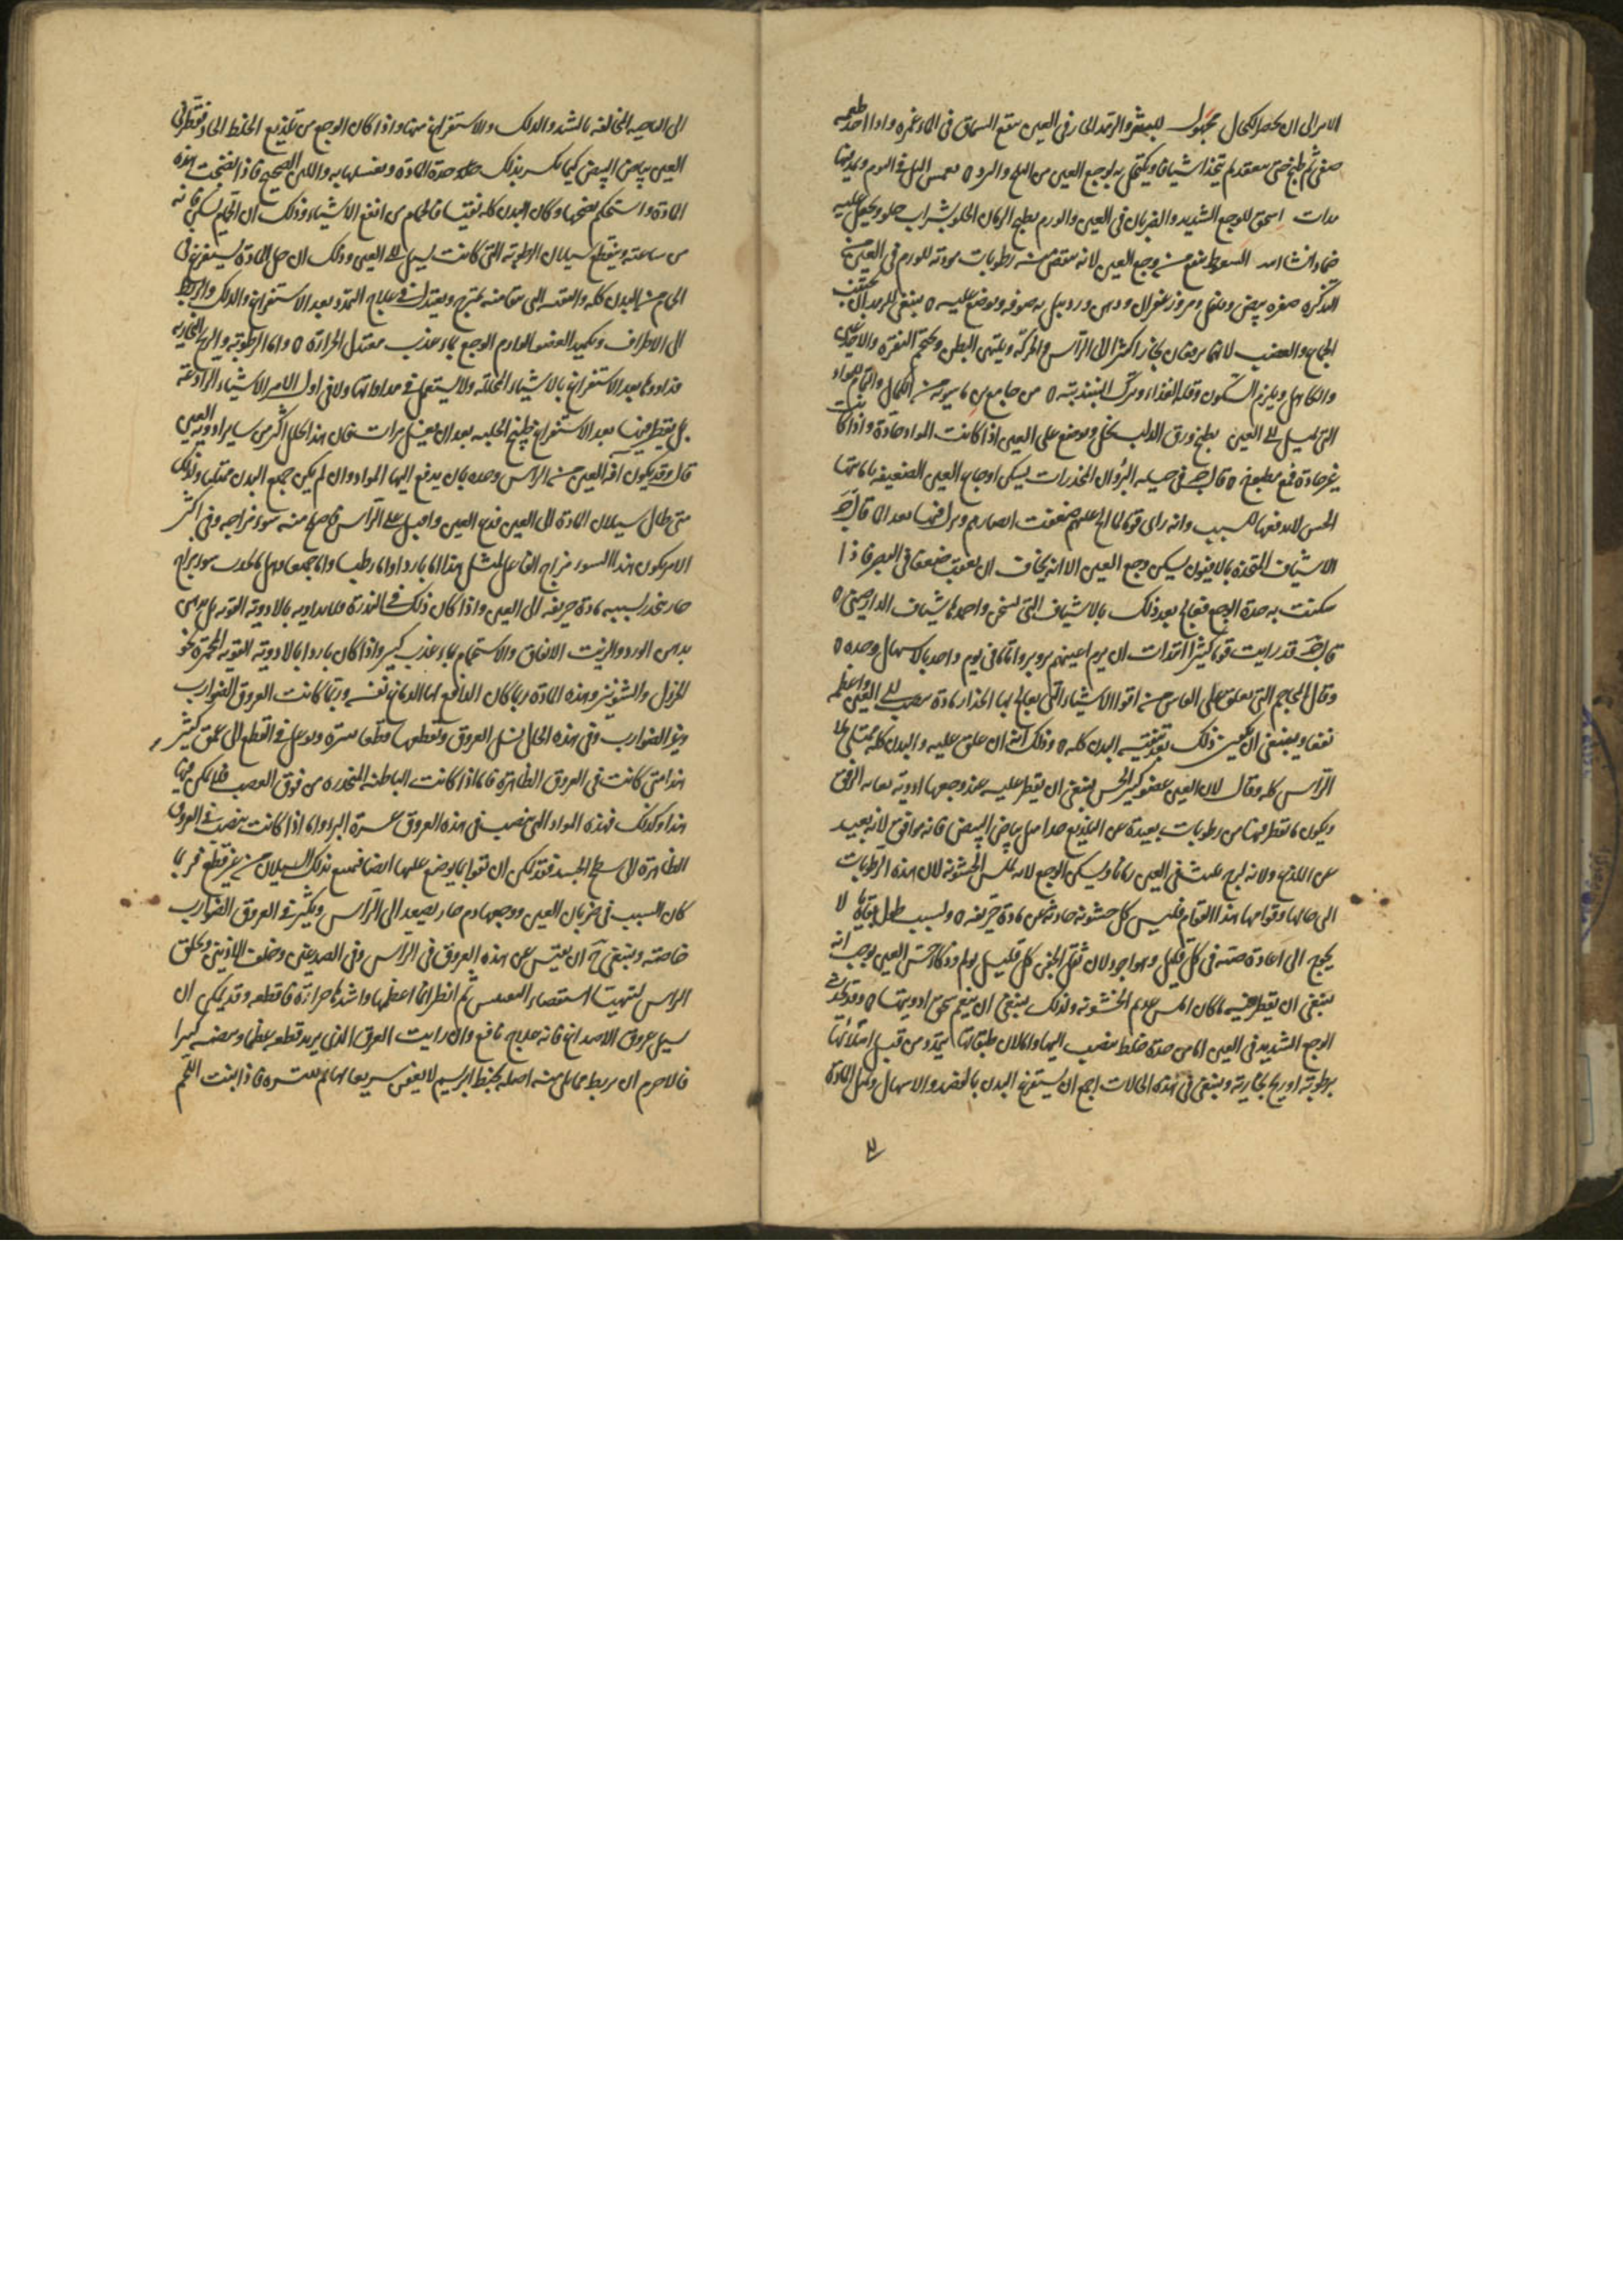 الامر الى ان يحضر الكحال مجهول للبثر والرمد الحار في العين ينقع السماق في الماء غمره واذا اخذ طعمه
صفي ثم طبخ حتى ينعقد ثم يتخذ اشيافا ويكتحل به لوجع العين من الثلج والبرد
مرات اسحق للوجع الشديد والضربان في العين والورم يطبخ الرمان الحلو بشراب حلو ويجعل عليه
ضمادا السعوط ينفع من وجع العين لانه ينقص منه رطوبات مودته للورم في العين من
التذكرة صفرة بيض وزعفران ودهن ورد يبل به صوفه ويوضع عليه ينبغي للرمد ان يجتنب
الجماع والغضب لانهما يرفعان بخارا كثيرا الى الراس والحركة ويلين البطن ويحجم النقرة والاخدعين
والكاهل ويلزم السكون وقلة الغذاء وترك النبيذ من جامع بن ماسويه من الكمال والتمام للمواد
التي تسيل الى العين يطبخ ورق الدلب بخل ويوضع على العين اذا كانت المواد حادة واذا كانت
غير حادة فمطبوخ قال ج في حيلة البرؤ ان المخدرات يسكن اوجاع العين الضعيفة باماتتها
الحس لا لدفعها للسبب وانه راى قوما لما الح عليهم ضعفت ابصارهم
الاشياف المتخذة بالافيون يسكن وجع العين الا انه يخاف ان يعقب ضعفا في البصر فاذا
سكنت به حدة الوجع فعالج بعد ذلك بالاشياف التي تسخن واحمدها شياف الدارصيني
قال ج قد رايت قوما كثيرا ابتدات ان يرم اعينهم وبروا تاما في يوم واحد بالاسهال وحده
وقال المحاجم التي تعلق على الفاس من اقوا الاشياء التي يعالج بها انحدار مادة الى العين واعظم
نفعا وينبغي ان يكون ذلك بعد تنقية البدن كله وذلك انه ان علق عليه والبدن كله ممتلي ملا
الراس كله وقال لان العين عضو كثير الحس ينبغي ان يقطر عليه عند وجعها ادوية
ويكون ما يقطر فيها من رطوبات بعيدة عن التلذيع جدا مثل بياض البيض فانه موافق لانه بعيد
عن اللذع ولانه لزج يلبث في العين زمانا ويسكن الوجع لانه يملس الخشونة لان هذه الرطوبات
الى حالها وقوامها هذا القوام تمليس كل خشونة حادثة عن مادة حريفه وبسبب طول بقاها لا
يحوج الى اعادة صبه في كل قليل وهو اجود لان شيل الجفن كل قليل يولم وذكا حس العين يوجب انه
ينبغي ان يقطر فيه ما كان املس عديم الخشونة ولذلك ينبغي ان ينعم سحق ادويتها وقد يحدث
الوجع الشديد في العين اما من حدة خلط ينصب اليها واما لان طبقاتها تتمدد من قبل امتلائها
برطوبة او ريح بخارية وينبغي في هذه الحالات اجمع ان يستفرغ البدن بالفصد والاسهال وتميل المادة
الى
الى الناحية المخالفة بالشد والدلك والاستفراغ منها واذا كان الوجع من تلذيع الخلط الحاد فقطر في
العين بياض البيض كيما يكسر بذلك حدة المادة وتغسلها به واللبن الصحيح فاذا انضجت هذه
المادة واستحكم نضجها وكان البدن كله نقيا فالحمام من انفع الاشياء وذلك ان الحمام يسكن فانه
من ساعته وينقطع سيلان الرطوبة التي كانت تسيل الى العين وذلك ان جل المادة يستفرغ في
الحمام من البدن كله والبقية التي منه تمتزج وتعتدل في علاج التمدد بعد الاستفراغ والدلك والربط
الى الاطراف وتكميد العضو الوارم الوجع بماء عذب معتدل الحرارة واما الرطوبة والريح البخارية
فداووها بعد الاستفراغ بالاشياء المحللة ولا يستعمل في مداواتها ولا في اول الامر الاشياء الرادعة
بل يقطر فيها بعد الاستفراغ طبيخ الحلبة بعد ان يغسل مرات فان هذا يحلل اكثر من ساير ادوية العين
قال وقد يكون افة العين من الراس وحده بان يدفع اليها المواد وان لم يكن جميع البدن ممتليا ولذلك
متى طال سيلان المادة الى العين فدع العين واقبل على الراس فاصلح منه سوء مزاجه وفي اكثر
الامر يكون هذا السوء مزاج الفاعل لمثل هذا اما باردا واما رطبا واما جميعا
حار يتحدر بسببه مادة حريفه الى العين واذا كان ذلك في الندرة فلا تداويه بالادوية القوية بل
بدهن الورد والزيت الانفاق والاستحمام بماء عذب كثير واذا كان باردا بالادوية القوية المحمرة نحو
الخردل والشونيز وهذه المادة ربما كان الدافع لها الدماغ نفسه وربما كانت العروق الضوارب
وغير الضوارب وفي هذه الحال تسل العروق وتقطعها وتوغل في القطع الى عمق كثير
هذا متى كانت في العروق الظاهرة فاما اذا كانت الباطنة المنحدرة من فوق العصب فلا يمكن فيها
هذا وكذلك فهذه المواد التي ينصب في هذه العروق عسرة البرء واما اذا كانت ينصب في العروق
الظاهرة الى سطح الجسد فقد يمكن ان نقوا بما يوضع عليها ايضا فيمنع بذلك السيلان من غير قطع فربما
كان السبب في ضربان العين ووجعها دم حار يصعد الى الراس ويكثر في العروق الضوارب
خاصة وينبغي ح ان يفتش عن هذه العروق في الراس وفي الصدغين وخلف الاذنين وتحلق
الراس لتهيئا استقصاء التفتيش ثم انظر ايها اعظمها واشدها حرارة فاقطعه وقد يمكن ان
تسل عروق الاصداغ فانه علاج نافع وان رايت العرق الذي يريد قطعه عظيما ونبضه كبيرا
فالاحزم ان تربط ما يلي منه اصله بخيط ابريسم لا يعفن سريعا ثم تبتره فاذا انبت اللحم